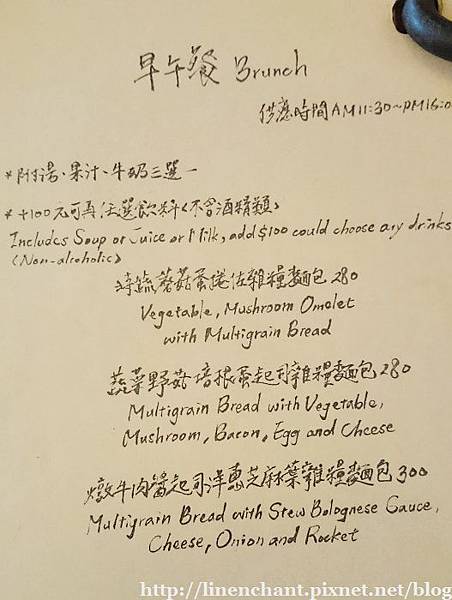 早午餐 Brunch
供應時間AM11:30~PM16:0
*附湯、果汁、牛奶三選一
*+100元可再任選飲料<不含酒精類>
Includes Soup or Juice or Milk, add $100 could choose any drinks
<Non-alcoholic>
時蔬蘑菇蛋捲佐雜糧麵包 280
Vegetable, Mushroom Omolet
with Multigrain Bread
蔬菜野菇培根蛋起司雜糧麵包 280
Multigrain Bread with Vegetable,
Mushroom, Bacon, Egg and Cheese
燉牛肉醬起司洋蔥芝麻葉雜糧麵包 300
Multigrain Bread with Stew Bolognese Sauce,
Cheese, Onion and Rocket
http://linenchant.pixnet.net/blog